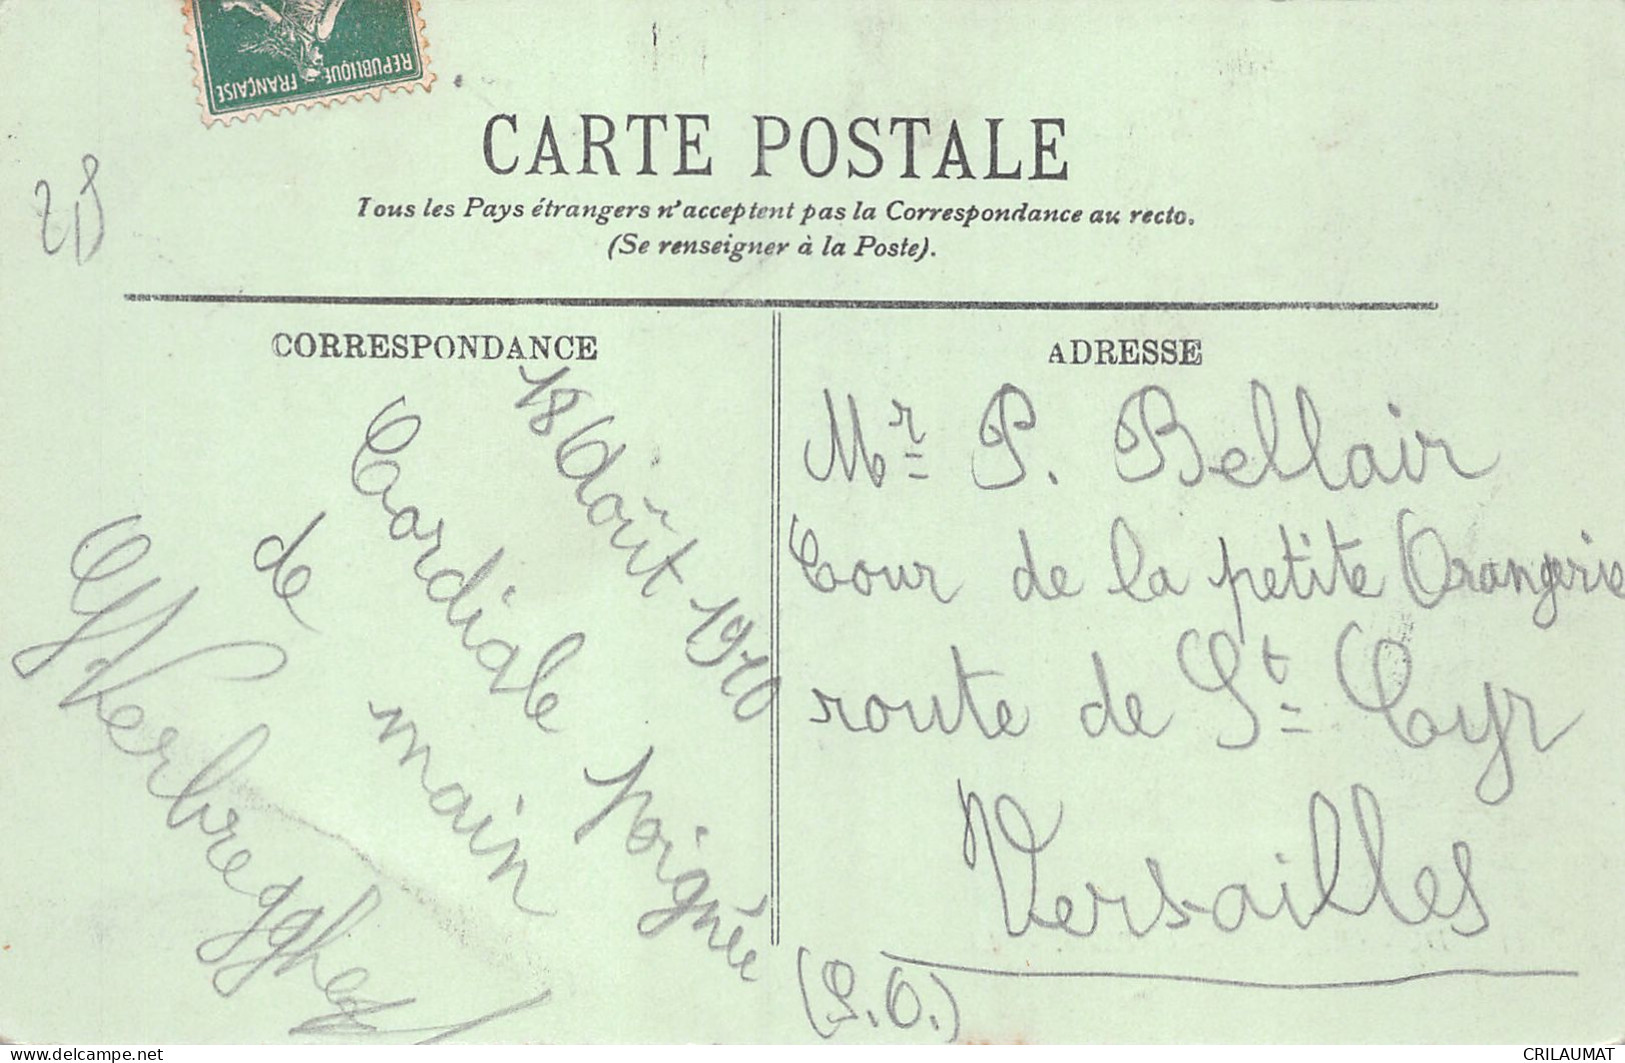 RÉPUBLIQUE FRANÇAISE
25
CARTE POSTALE
Tous les Pays étrangers n'acceptent pas la Correspondance au recto.
(Se renseigner à la Poste).
CORRESPONDANCE
18 Août 1910
Cordiale poignée
de main
Verbregghe
ADRESSE
Mr P. Bellair
Cour de la petite Orangerie
route de St Cyr
Versailles
(S.O.)
www.delcampe.net
CRILAUMAT